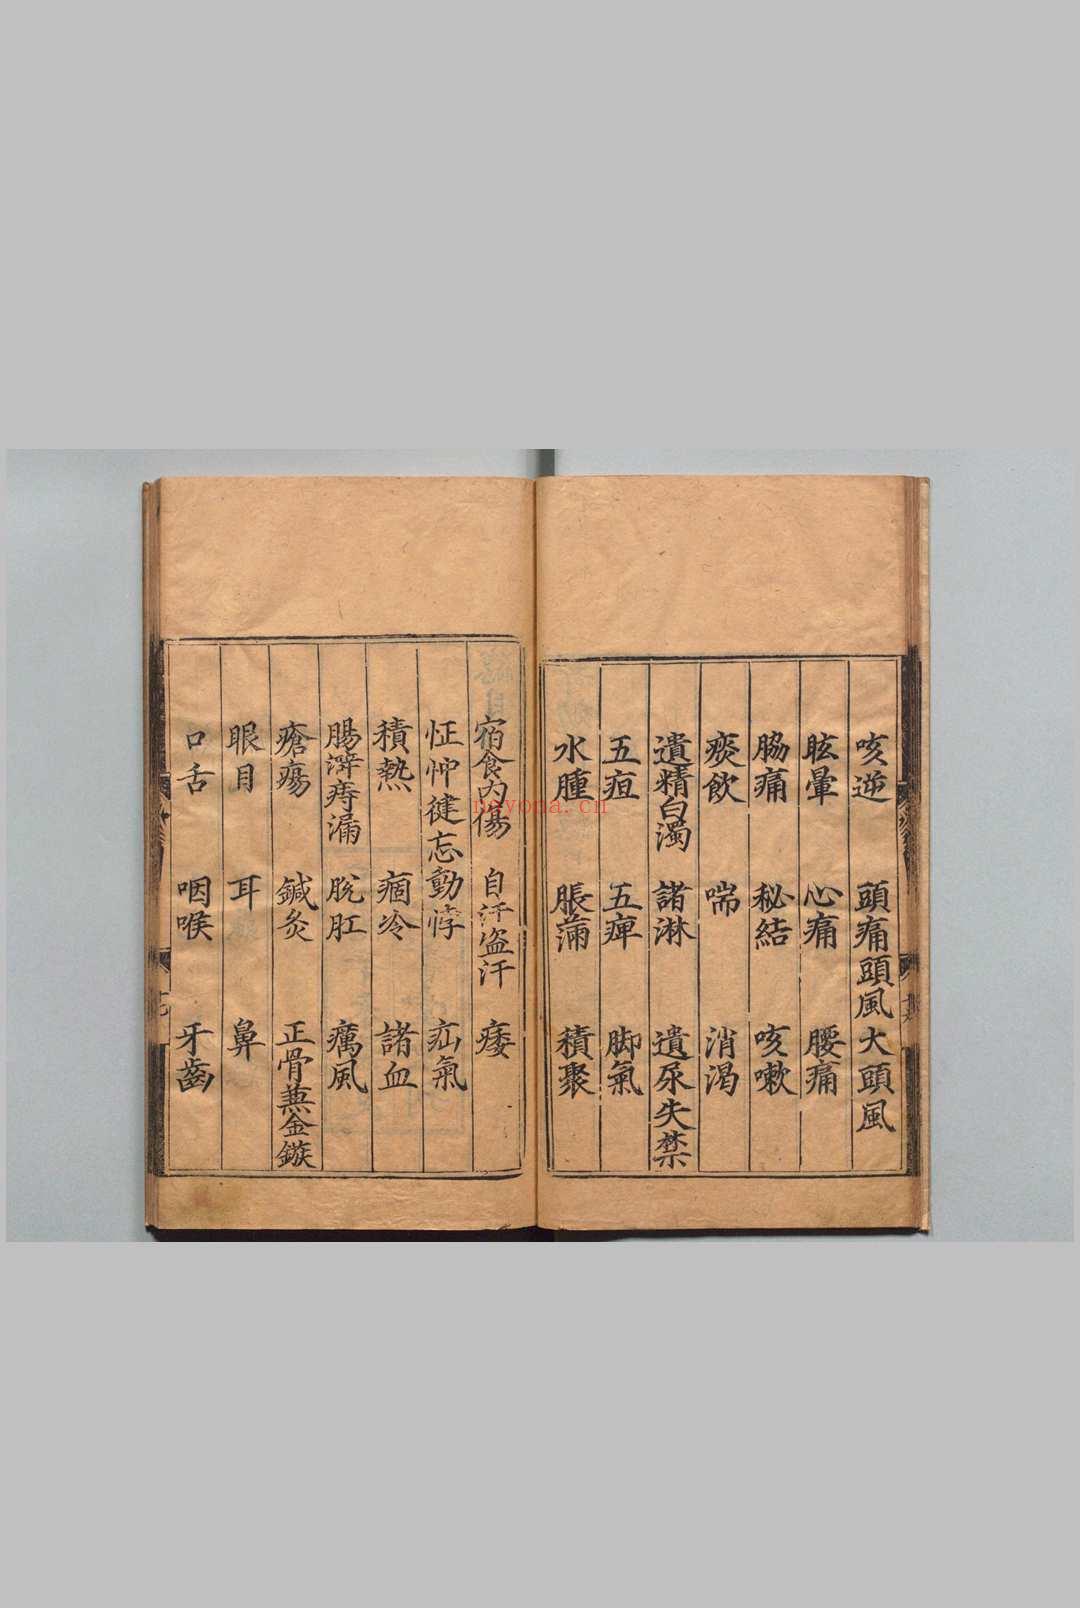 咳逆 頭痛頭風大頭風
眩暈 心痛 腰痛
脇痛 秘結 咳嗽
痰飲 喘 消渴
遺精白濁 諸淋 遺尿失禁
五疸 五痺 脚氣
水腫 脹滿 積聚
宿食內傷 自汗盗汗 痿
怔忡健忘動悸 疝氣
積熱 痼冷 諸血
腸澼痔漏 脫肛 癘風
瘡瘍 鍼灸 正骨兼金鏃
眼目 耳 鼻
口舌 咽喉 牙齒
nayona.cn